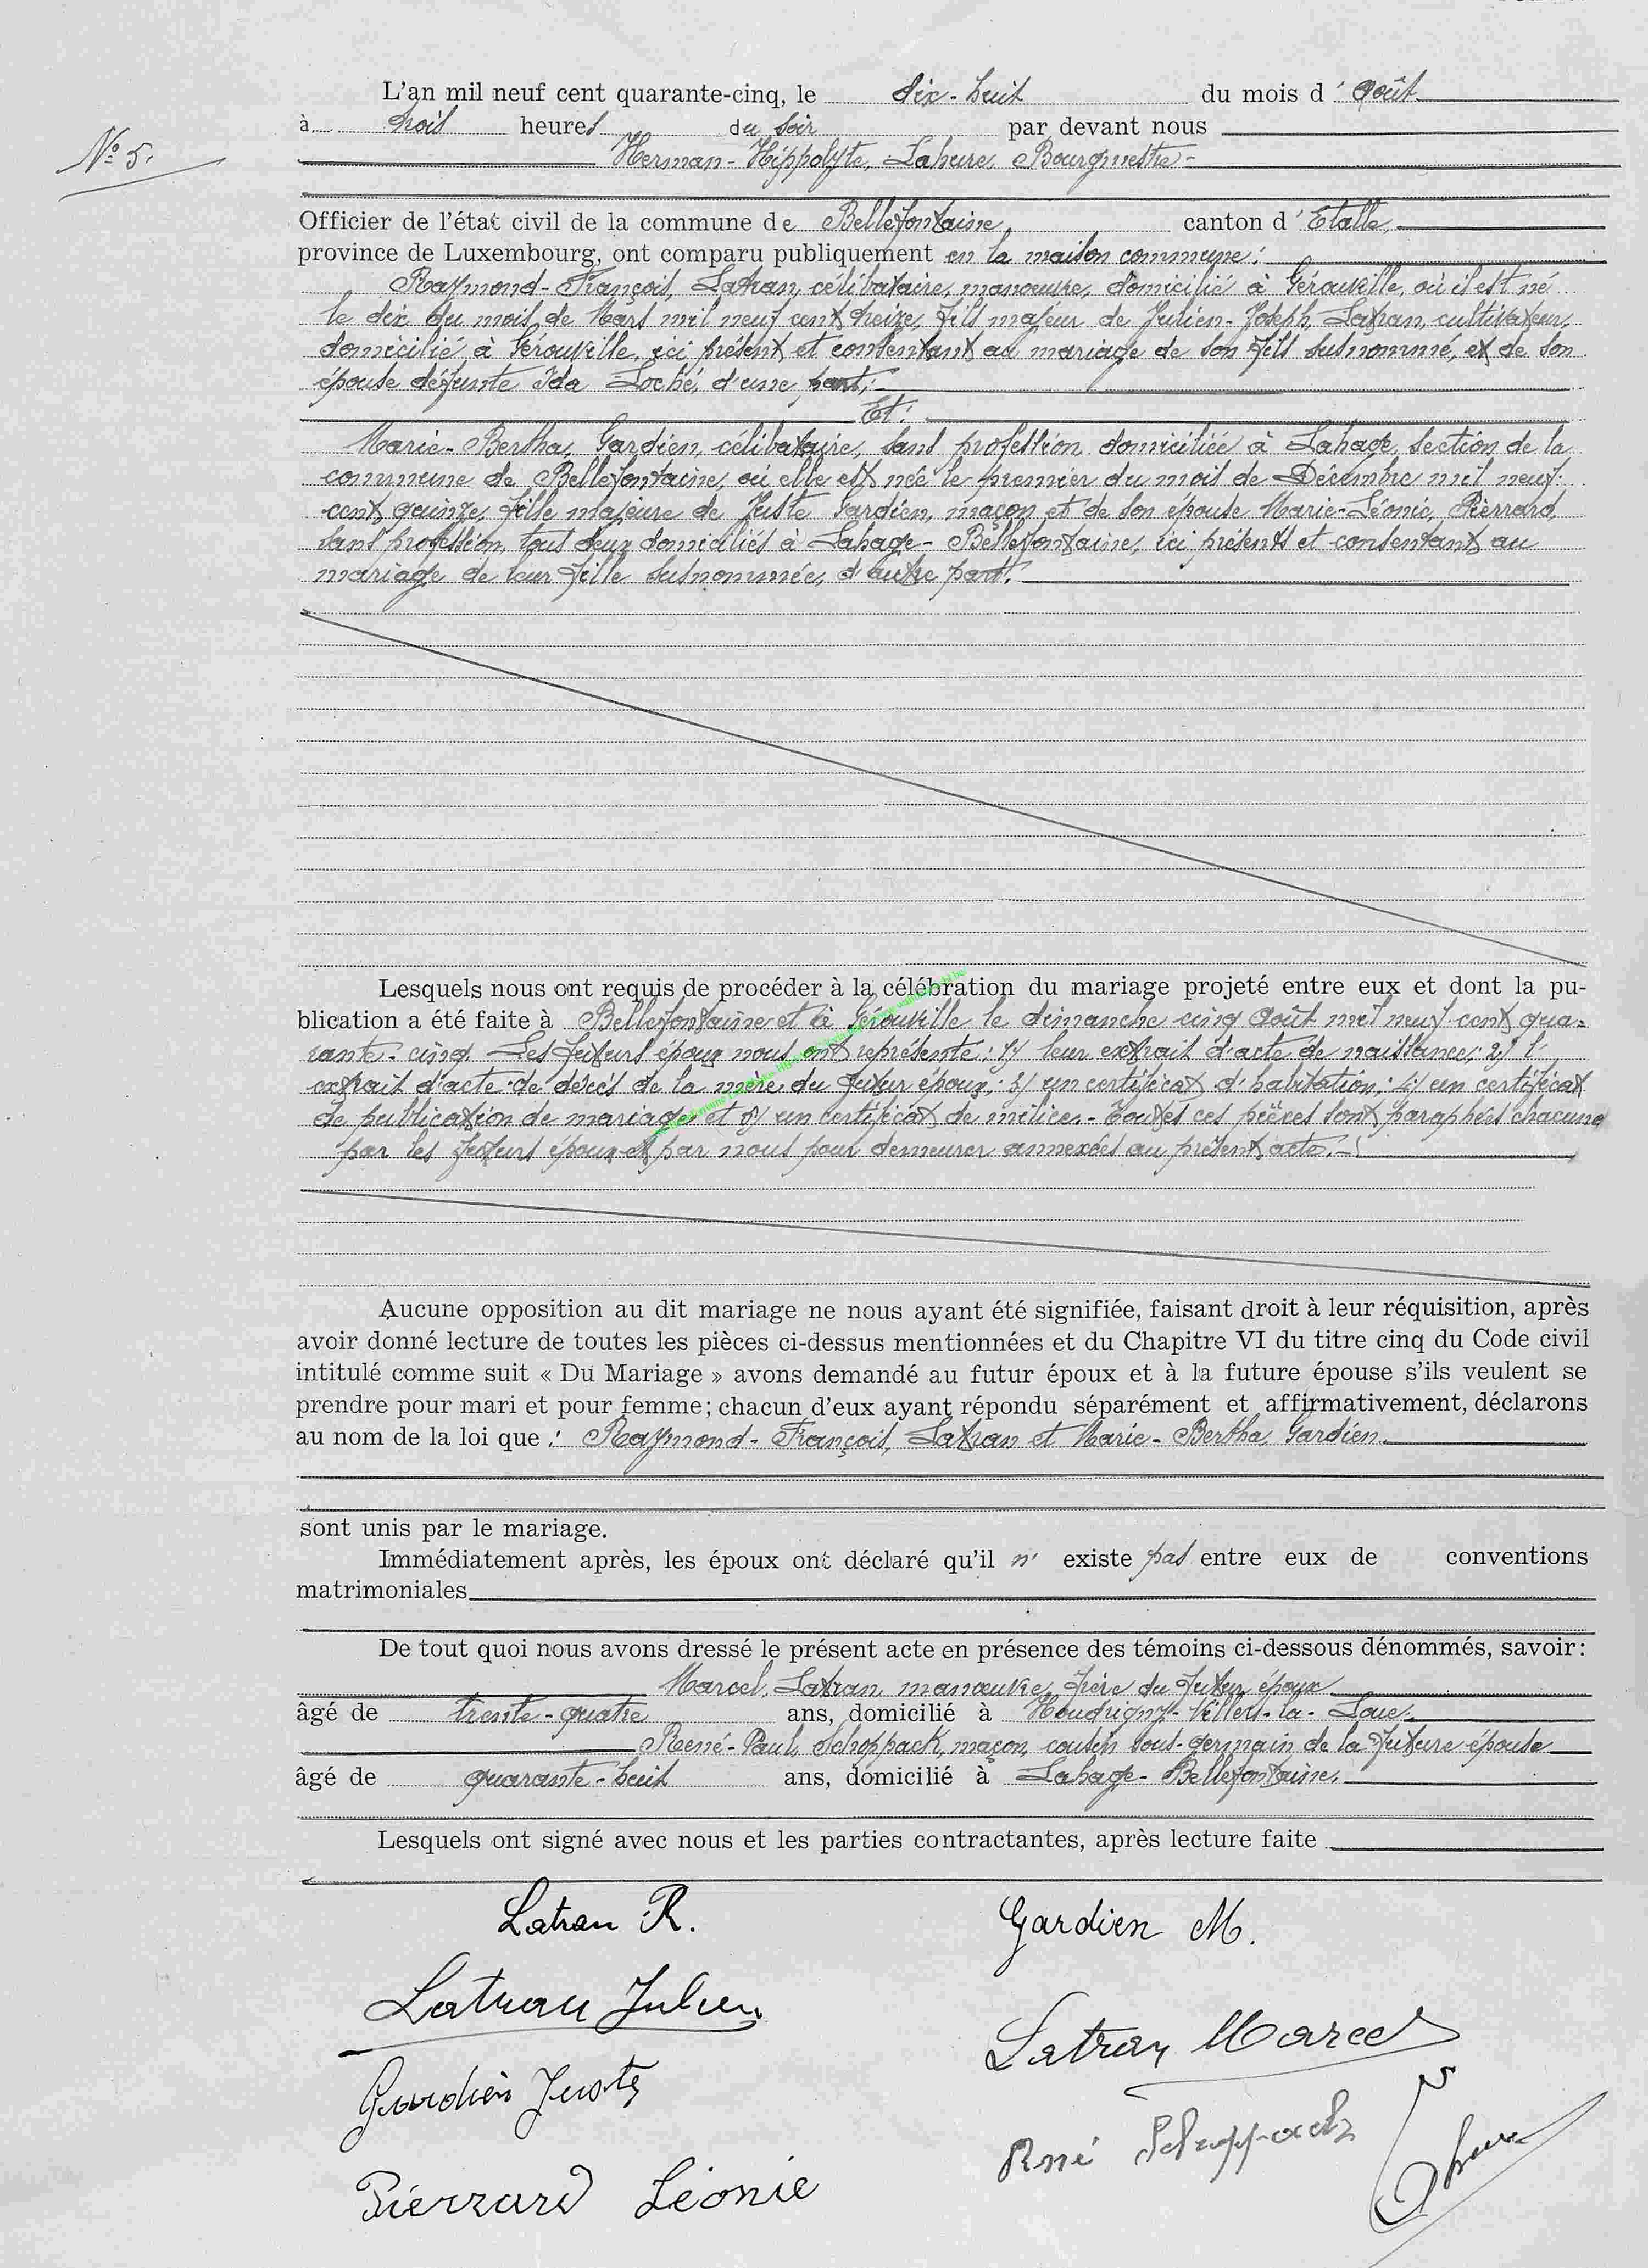 L'an mil neuf cent quarante-cinq, le dix-huit du mois d' Août
à trois heures du soir par devant nous
N° 5.
Herman-Hippolyte, Lahure, Bourgmestre-
Officier de l'état civil de la commune de Bellefontaine, canton d' Etalle,
province de Luxembourg, ont comparu publiquement en la maison commune:
Raymond-François, Latran, célibataire, manœuvre, domicilié à Gérouville, où il est né
le dix du mois de Mars mil neuf cent treize, fils majeur de Julien-Joseph, Latran, cultivateur,
domicilié à Gérouville, ici présent et consentant au mariage de son fils susnommé, et de son
épouse défunte Ida Loché, d'une part;-
Et:
Marie-Bertha, Gardien, célibataire, sans profession, domiciliée à Lahage, section de la
commune de Bellefontaine, où elle est née le premier du mois de Décembre mil neuf
cent quinze, fille majeure de Juste Gardien, maçon et de son épouse Marie-Léonie, Pierrard,
sans profession, tous deux domiciliés à Lahage-Bellefontaine, ici présents et consentant au
mariage de leur fille susnommée, d'autre part.
Lesquels nous ont requis de procéder à la célébration du mariage projeté entre eux et dont la pu-
blication a été faite à Bellefontaine et à Gérouville le dimanche cinq Août mil neuf cent qua-
rante-cinq. Les futurs époux nous ont représenté: 1) leur extrait d'acte de naissance; 2) l'
extrait d'acte de décès de la mère du futur époux; 3) un certificat d'habitation; 4) un certificat
de publication de mariage et 5) un certificat de milice.- Toutes ces pièces sont paraphées chacune
par les futurs époux et par nous pour demeurer annexées au présent acte.-
Aucune opposition au dit mariage ne nous ayant été signifiée, faisant droit à leur réquisition, après
avoir donné lecture de toutes les pièces ci-dessus mentionnées et du Chapitre VI du titre cinq du Code civil
intitulé comme suit « Du Mariage » avons demandé au futur époux et à la future épouse s'ils veulent se
prendre pour mari et pour femme; chacun d'eux ayant répondu séparément et affirmativement, déclarons
au nom de la loi que: Raymond-François, Latran et Marie-Bertha, Gardien.
sont unis par le mariage.
Immédiatement après, les époux ont déclaré qu'il n' existe pas entre eux de conventions
matrimoniales
De tout quoi nous avons dressé le présent acte en présence des témoins ci-dessous dénommés, savoir:
Marcel, Latran, manœuvre, frère du futur époux
âgé de trente-quatre ans, domicilié à Houdrigny-Villers-la-Loue.
René-Paul, Schoppack, maçon, cousin sous-germain de la future épouse
âgé de quarante-huit ans, domicilié à Lahage-Bellefontaine.
Lesquels ont signé avec nous et les parties contractantes, après lecture faite
Latran R. Gardien M.
Latran Julien
Latran Marcel
Gardien Juste
René Schoppack
Lahure
Pierrard Léonie